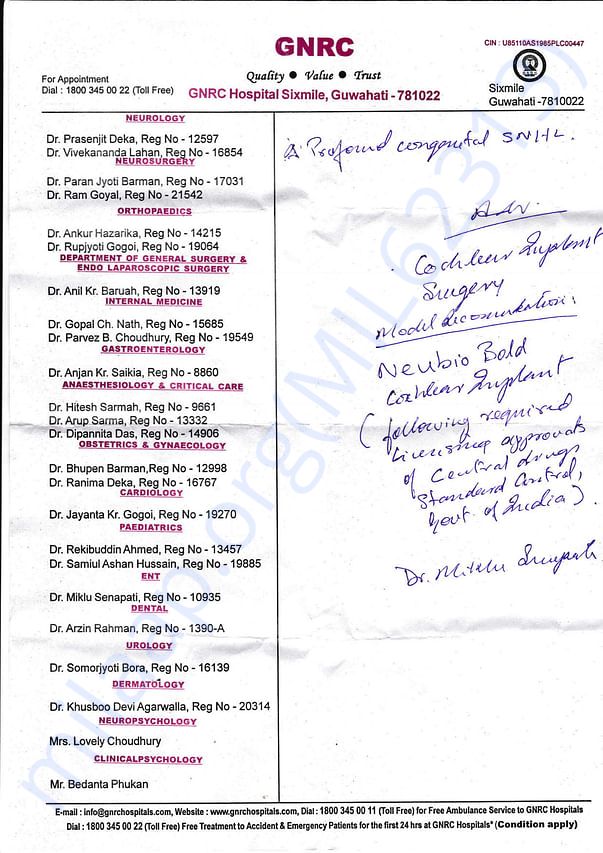 CIN : U85110AS1985PLC00447
GNRC
Quality ● Value ● Trust
For Appointment
Dial : 1800 345 00 22 (Toll Free)
GNRC Hospital Sixmile, Guwahati - 781022
Sixmile
Guwahati -7810022
NEUROLOGY
Dr. Prasenjit Deka, Reg No - 12597
Dr. Vivekananda Lahan, Reg No - 16854
NEUROSURGERY
Dr. Paran Jyoti Barman, Reg No - 17031
Dr. Ram Goyal, Reg No - 21542
ORTHOPAEDICS
Dr. Ankur Hazarika, Reg No - 14215
Dr. Rupjyoti Gogoi, Reg No - 19064
DEPARTMENT OF GENERAL SURGERY &
ENDO LAPAROSCOPIC SURGERY
Dr. Anil Kr. Baruah, Reg No - 13919
INTERNAL MEDICINE
Dr. Gopal Ch. Nath, Reg No - 15685
Dr. Parvez B. Choudhury, Reg No - 19549
GASTROENTEROLOGY
Dr. Anjan Kr. Saikia, Reg No - 8860
ANAESTHESIOLOGY & CRITICAL CARE
Dr. Hitesh Sarmah, Reg No - 9661
Dr. Arup Sarma, Reg No - 13332
Dr. Dipannita Das, Reg No - 14906
OBSTETRICS & GYNAECOLOGY
Dr. Bhupen Barman,Reg No - 12998
Dr. Ranima Deka, Reg No - 16767
CARDIOLOGY
Dr. Jayanta Kr. Gogoi, Reg No - 19270
PAEDIATRICS
Dr. Rekibuddin Ahmed, Reg No - 13457
Dr. Samiul Ashan Hussain, Reg No - 19885
ENT
Dr. Miklu Senapati, Reg No - 10935
DENTAL
Dr. Arzin Rahman, Reg No - 1390-A
UROLOGY
Dr. Somorjyoti Bora, Reg No - 16139
DERMATOLOGY
Dr. Khusboo Devi Agarwalla, Reg No - 20314
NEUROPSYCHOLOGY
Mrs. Lovely Choudhury
CLINICALPSYCHOLOGY
Mr. Bedanta Phukan
Profound congenital SNHL.
Adv.
Cochlear Implant
Surgery
Model Recommendation:
Neubio Bold
Cochlear Implant
(following required
licensing approvals
of Central drugs
Standard Control,
Govt. of India)
Dr. Miklu Senapati
E-mail : info@gnrchospitals.com, Website : www.gnrchospitals.com, Dial : 1800 345 00 11 (Toll Free) for Free Ambulance Service to GNRC Hospitals
Dial : 1800 345 00 22 (Toll Free) Free Treatment to Accident & Emergency Patients for the first 24 hrs at GNRC Hospitals* (Condition apply)
milaap.org(MIL62313)